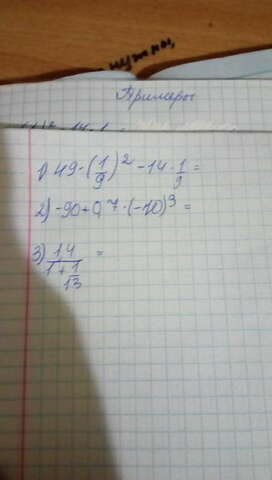 нужны,
Примеры
1) 49·(1/9)² - 14·1/9 =
2) -90+0,7·(-10)³ =
3) 14/(1+1/13) =